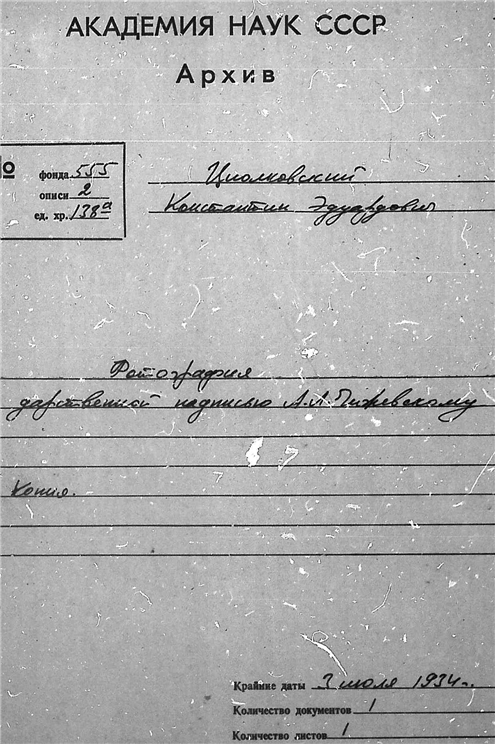 АКАДЕМИЯ НАУК СССР
Архив
№
фонда 555
описи 2
ед. хр. 138а
Циолковский
Константин Эдуардович
Фотография
дарственной надписью А.Л. Чижевскому
Копия.
Крайние даты 3 июля 1934 г.
Количество документов 1
Количество листов 1